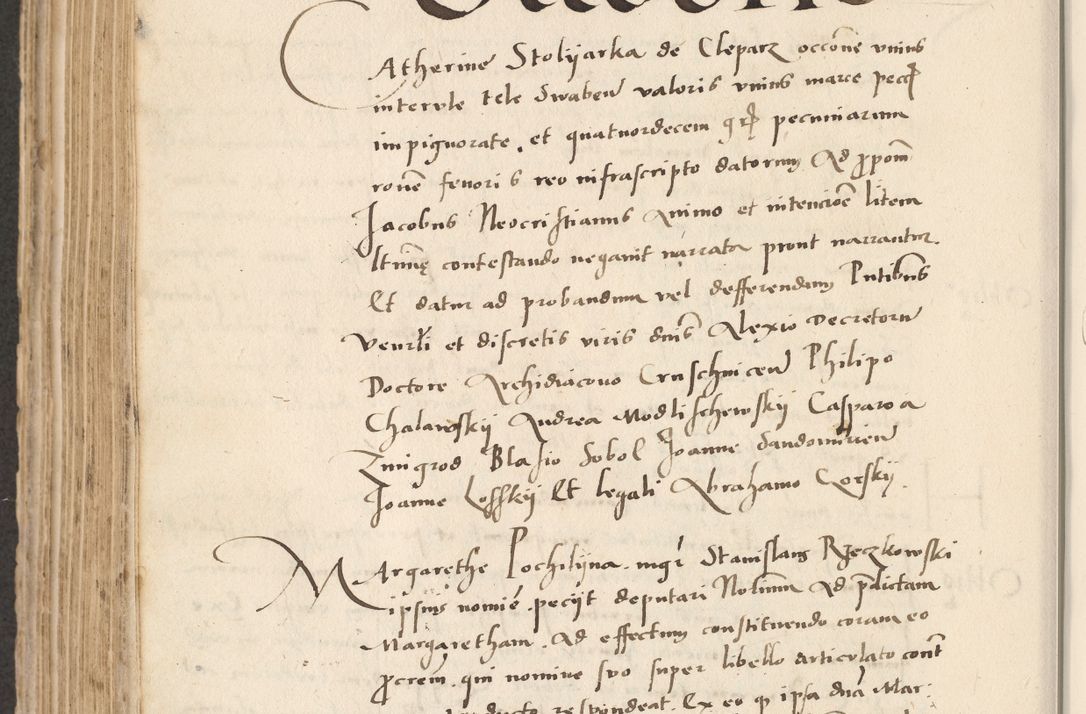 Catherine Stolijarka de Cleparz occone unius
intervle tele Swaben valoris unius marce
impignorate, et quatuordecem gr pecuniarum
rone fenoris reo infrascripto datorum Ad ppom
Jacobus Neocristianus Animo et intencioe litem
contestando negavit narrata prout narrantur.
Et datur ad probandum vel defferendum Pntibus
Venrli et discretis viris dnis Alexio Decretorum
Doctore Archidiacono Cruschuicen Philipo
Chalawskij Andrea Modlischewskij Casparo a
Zmigrod Blasio Sobol Joanne Sandomirien
Joanne Losskij Et legali Abrahamo
Margarethe Pochilijna. mgr Stanislaus Rzeczkowski
ipsius nomie. pecijt deputari Notium Ad pdictam
Margaretham. Ad effectum constituendo coram eo
pcrem. qui nomine suo super libello articulato cont
respondeat. Ex eo q ipsa dna Mar: